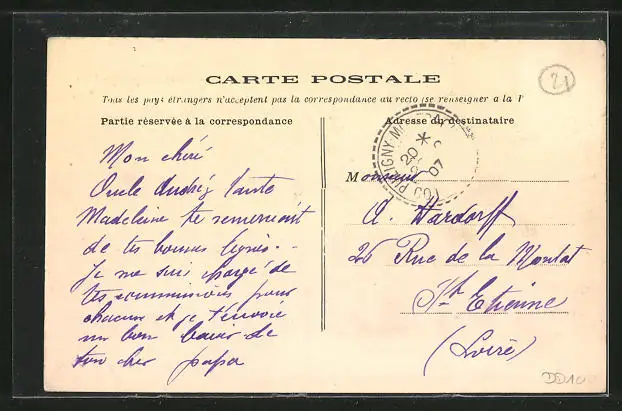 CARTE POSTALE
Tous les pays étrangers n'acceptent pas la correspondance au recto (se renseigner à la P
Partie réservée à la correspondance
Mon chéri
Oncle André, tante
Madeleine te remercient
de tes bonnes lignes.
Je me suis chargé de
tes commissions pour
chacun et je t'envoie
un bon baiser de
ton cher papa
Adresse du destinataire
20 07
Monsieur
A. Hardorff
26 Rue de la Montat
St Etienne
(Loire)
21
DD10